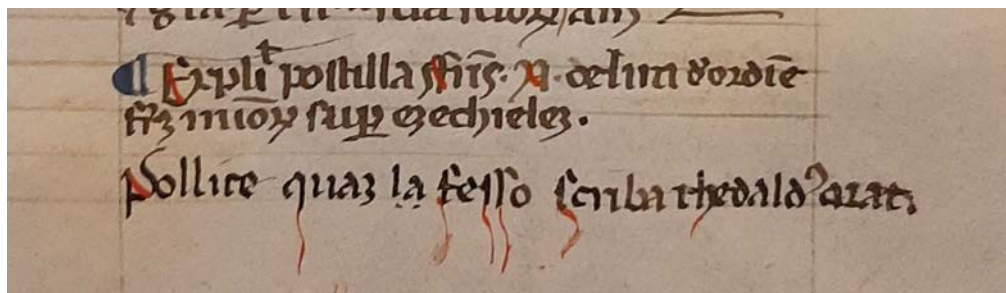 ¶ Expliͭ postilla fr̄is · N · de lira d ordīe
fr̄ꝫ mīoꝝ suꝑ ezechieleꝫ .
Pollice quaꝫ la fesso scriba thedaldꝰ arat.